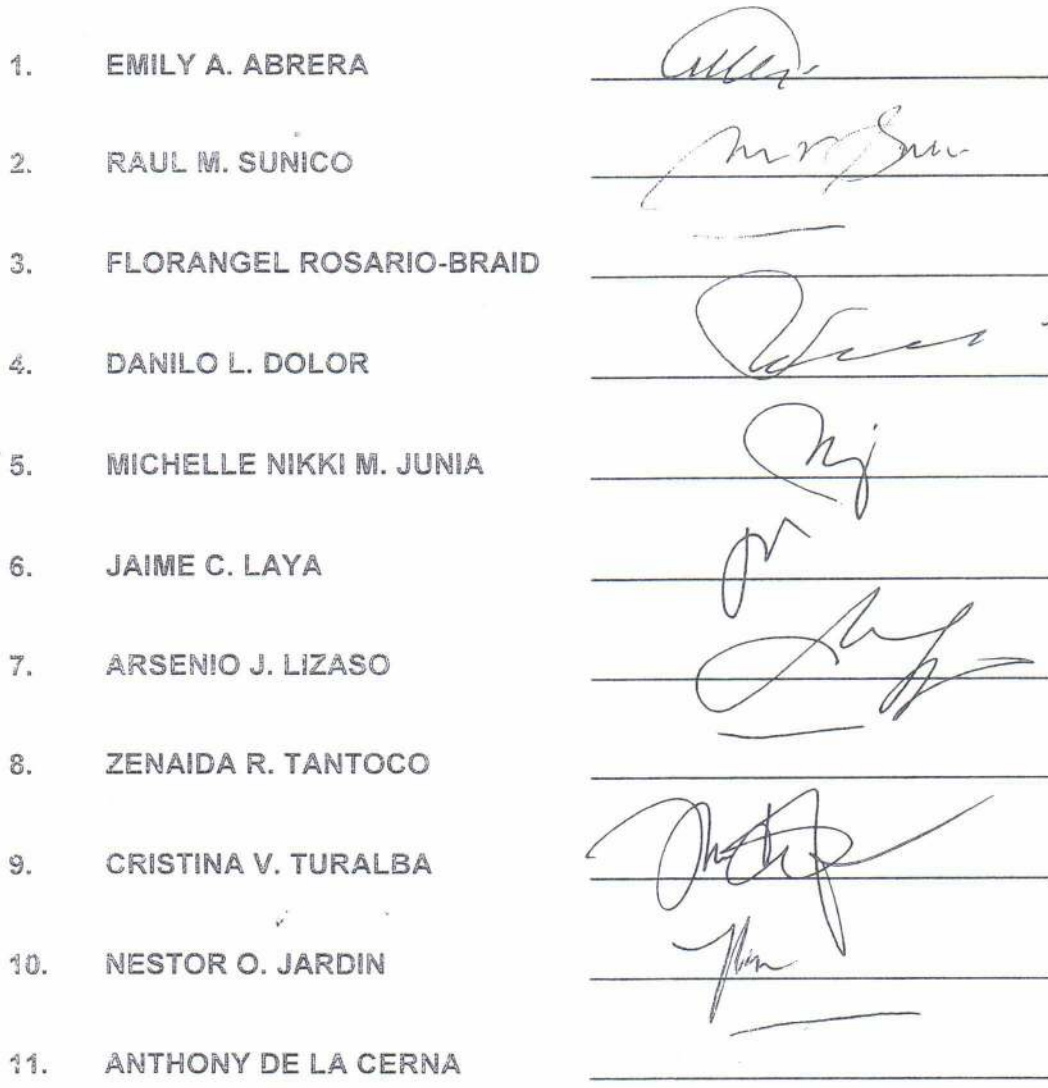 1. EMILY A. ABRERA
2. RAUL M. SUNICO
3. FLORANGEL ROSARIO-BRAID
4. DANILO L. DOLOR
5. MICHELLE NIKKI M. JUNIA
6. JAIME C. LAYA
7. ARSENIO J. LIZASO
8. ZENAIDA R. TANTOCO
9. CRISTINA V. TURALBA
10. NESTOR O. JARDIN
11. ANTHONY DE LA CERNA